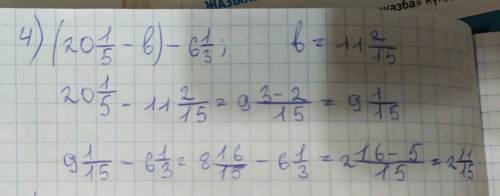 ЖАЗЫЛ
жазба"
4) (20 1/5 - в) - 6 1/3; в = 11 2/15
20 1/5 - 11 2/15 = 9 (3-2)/15 = 9 1/15
9 1/15 - 6 1/3 = 8 16/15 - 6 1/3 = 2 (16-5)/15 = 2 11/15.